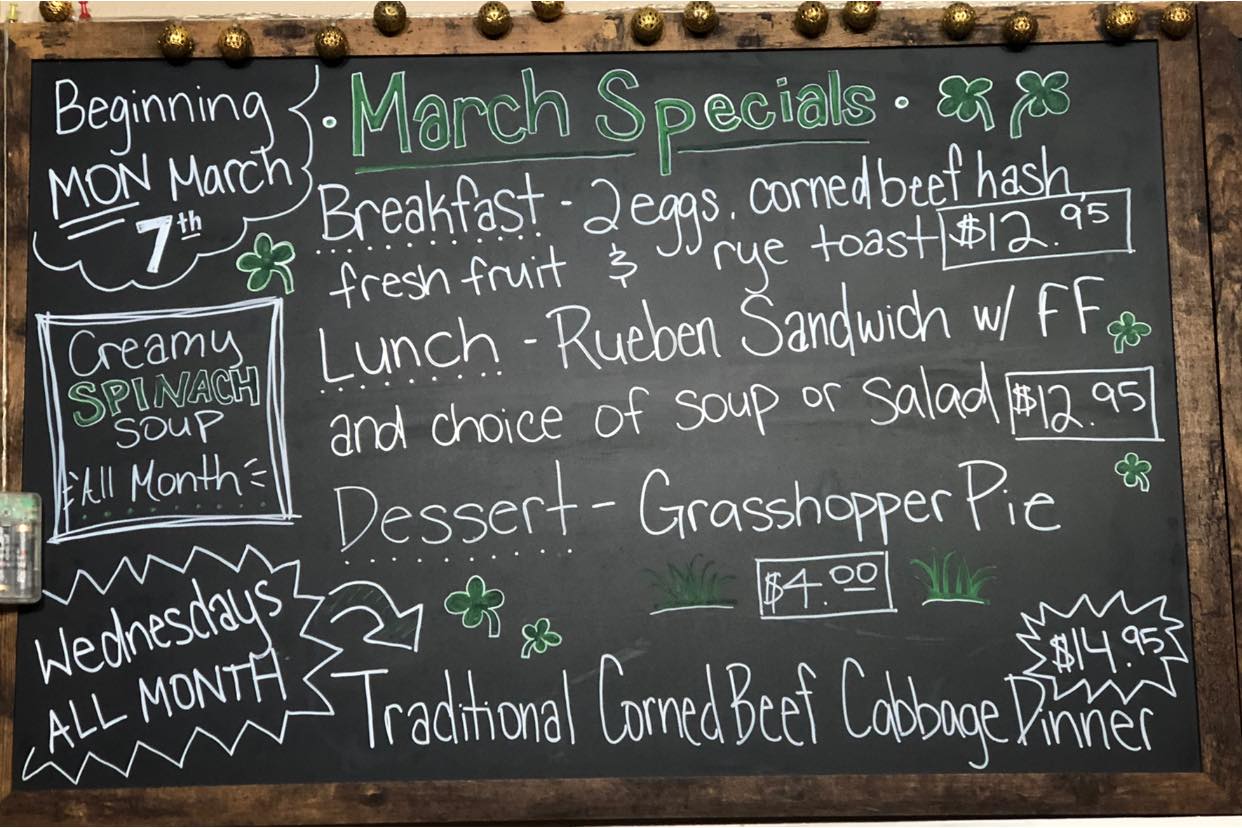 Beginning
MON March
7th
· March Specials ·
Breakfast - 2 eggs, corned beef hash,
fresh fruit & rye toast $12.95
Creamy
SPINACH
SOUP
All Month
Lunch - Rueben Sandwich w/ FF
and choice of soup or salad $12.95
Dessert - Grasshopper Pie
$4.00
Wednesdays
ALL MONTH
Traditional Corned Beef Cabbage Dinner
$14.95